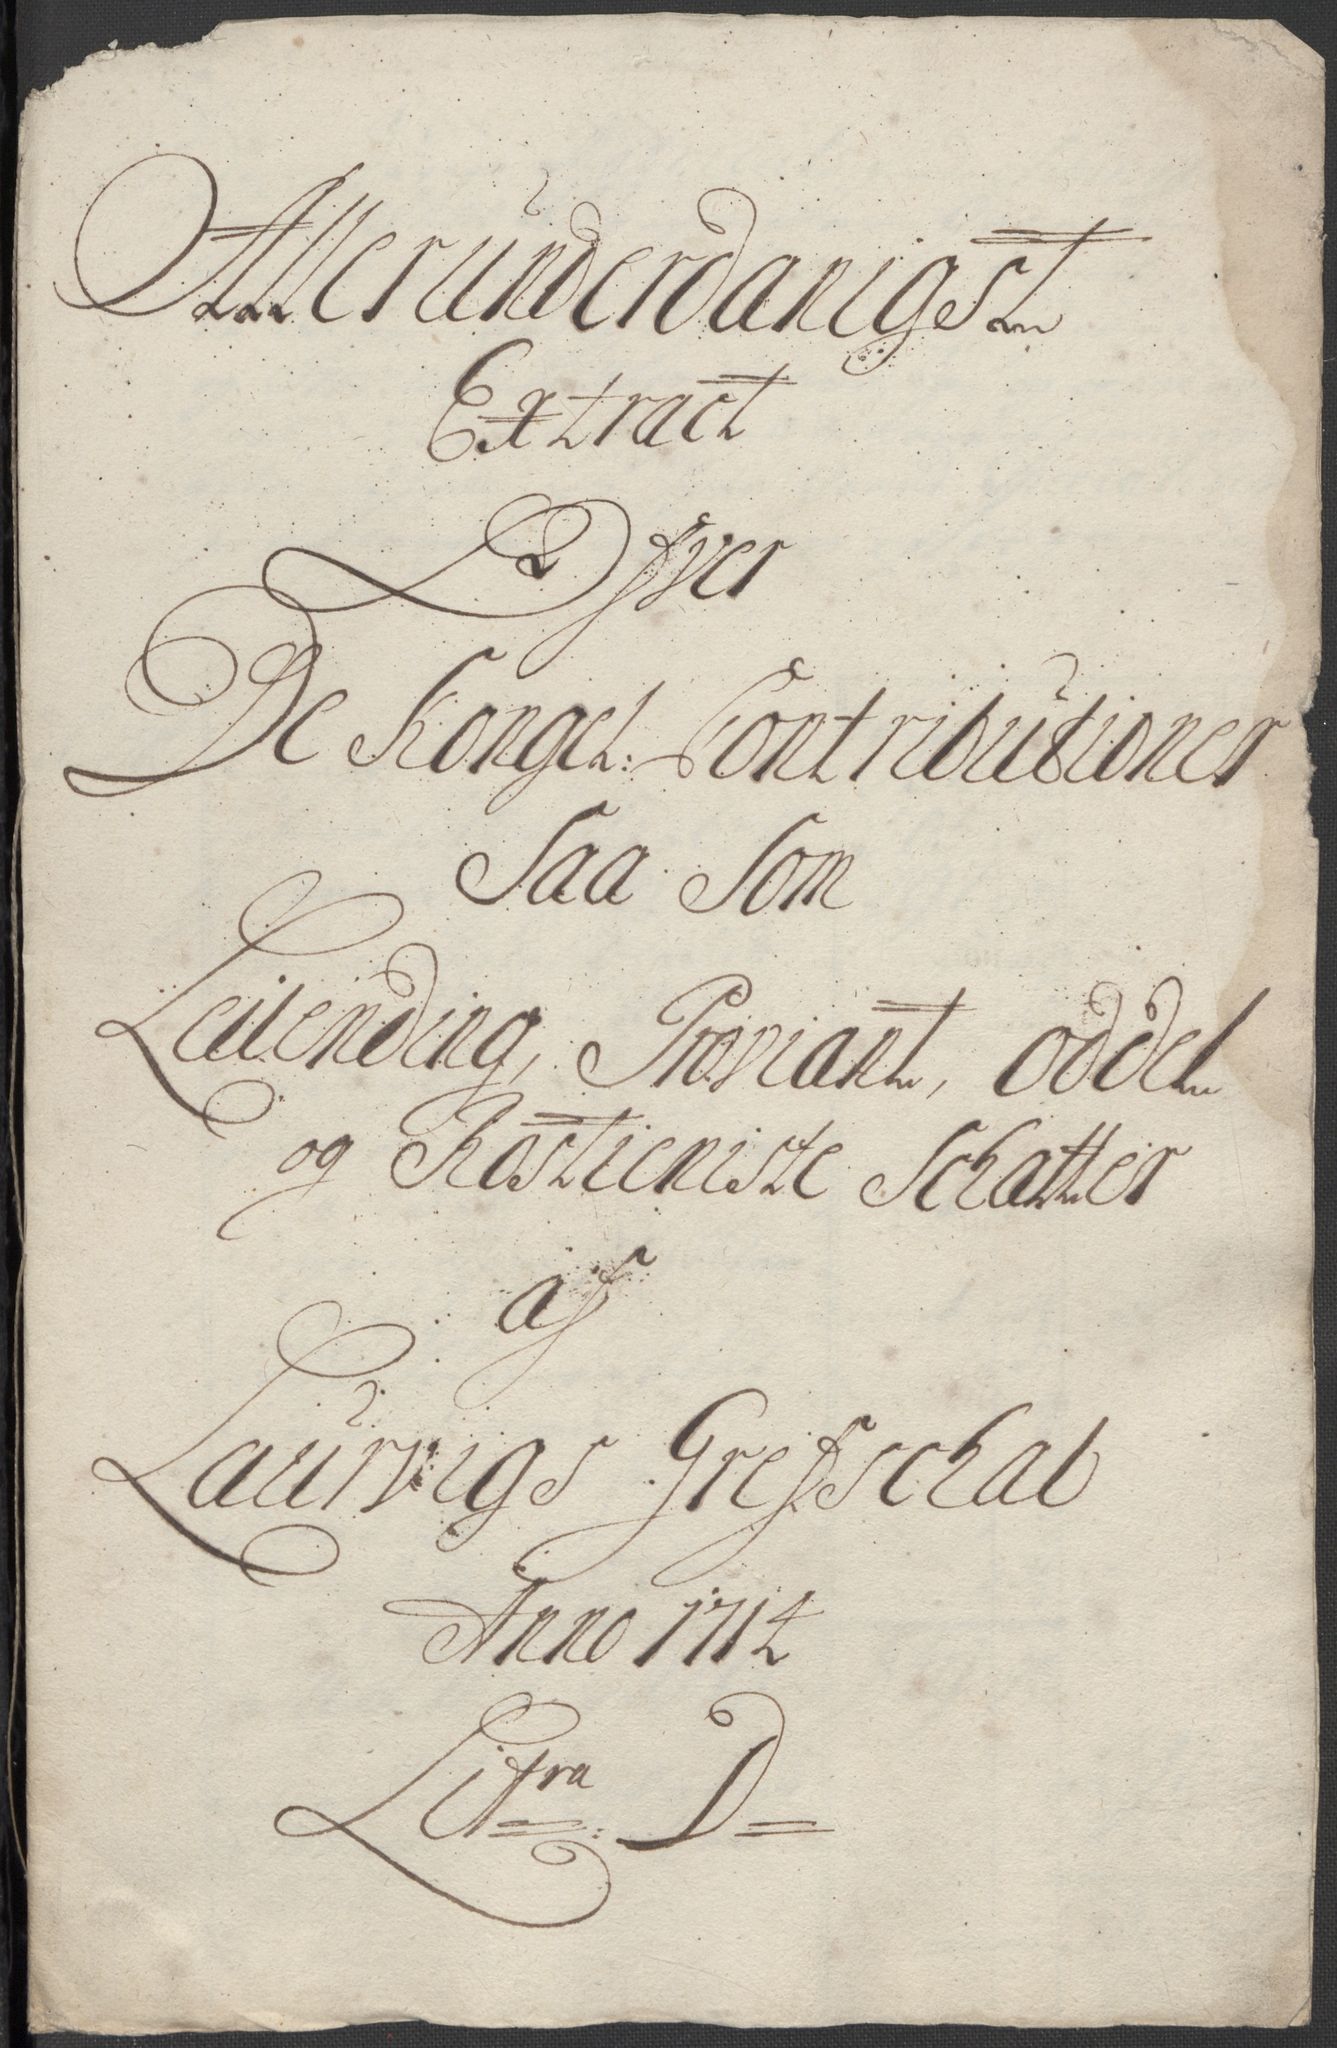 Allerunderdanigst
Extract
Ofver
De Kongel: Contributioner
Saa Som
Leilending, Proviant, oddel
og Rostieniste Schatter
af
Laurvigs Grefschab
Anno 1714
Litra: D